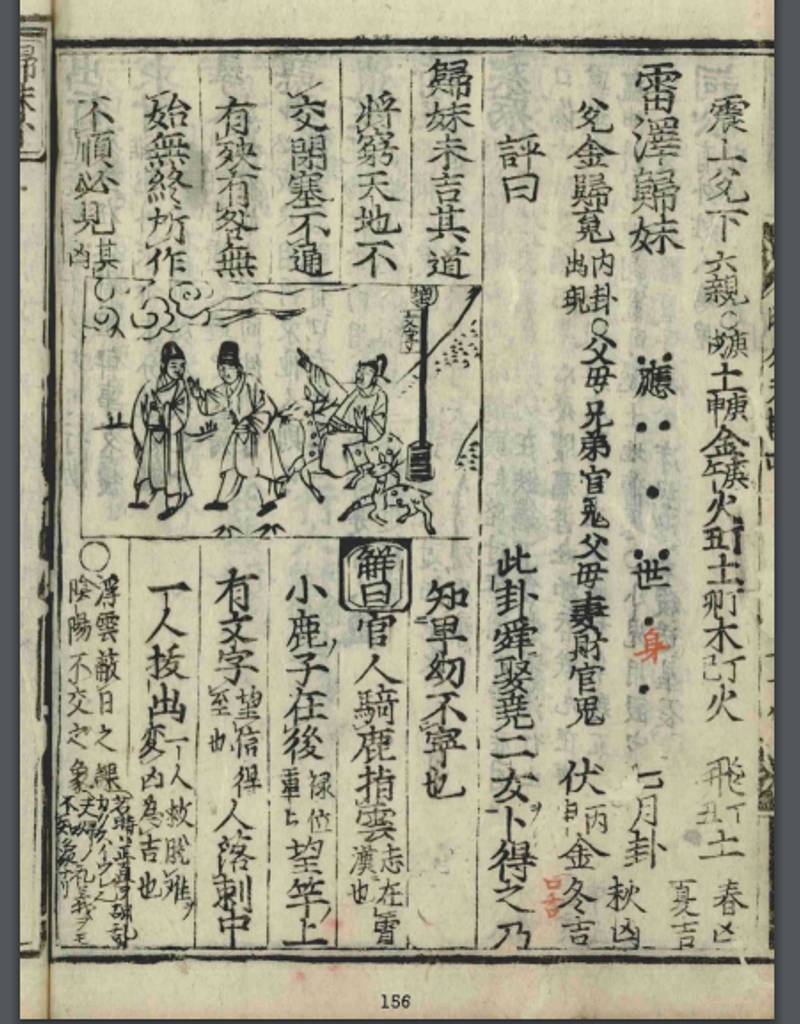 震上兌下 六親 庚戌土 庚申金 庚午火 丑丁土 卯丁木 巳丁火 飛 丑丁土 春凶 夏吉
雷澤歸妹 應 世 身 七月卦 秋凶
兌金歸䰟 內卦出現 ○父母兄弟官鬼父母妻財官鬼 伏 丙申金 冬吉
評曰 此卦舜娶堯二女卜得之乃
知卑幼不寧也
歸妹未吉其道
將窮天地不
交閉塞不通
有殃有咎無
始無終所作
不順必見其凶
解曰官人騎鹿指雲 志在霄漢也
小鹿子在後 祿位重也 望竿上
有文字 望信得至也 人落刺中
一人拔出 一人救脫難変凶為吉也
○浮雲蔽日之課
陰陽不交之象
文字
156